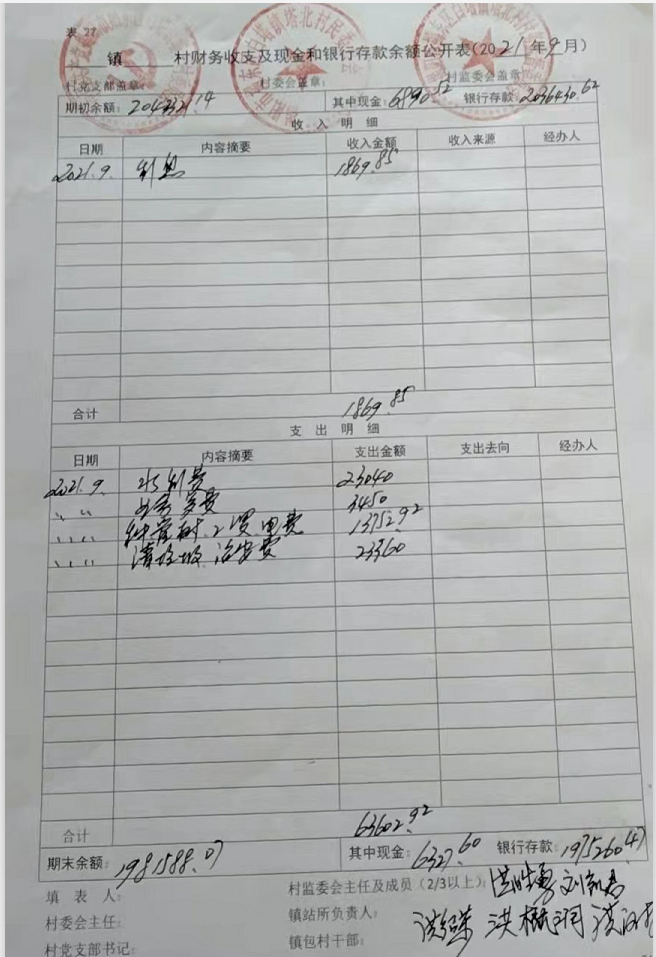 表 27
镇 村财务收支及现金和银行存款余额公开表(2021年9月)
村党支部盖章: 村委会盖章: 村监委会盖章:
期初余额: 2043321.14 其中现金: 6890.52 银行存款: 2036430.62
收 入 明 细
日期 内容摘要 收入金额 收入来源 经办人
2021.9. 利息 1869.85
合计 1869.85
支 出 明 细
日期 内容摘要 支出金额 支出去向 经办人
2021.9. 水利费 23040
〃 〃 务费 3450
〃 〃 电费 13752.92
〃 〃 清垃圾 治安费 23360
合计 63602.92
期末余额: 1981588.07 其中现金: 6327.60 银行存款: 1975260.47
填 表 人: 村监委会主任及成员(2/3以上):
村委会主任: 镇站所负责人:
村党支部书记: 镇包村干部: